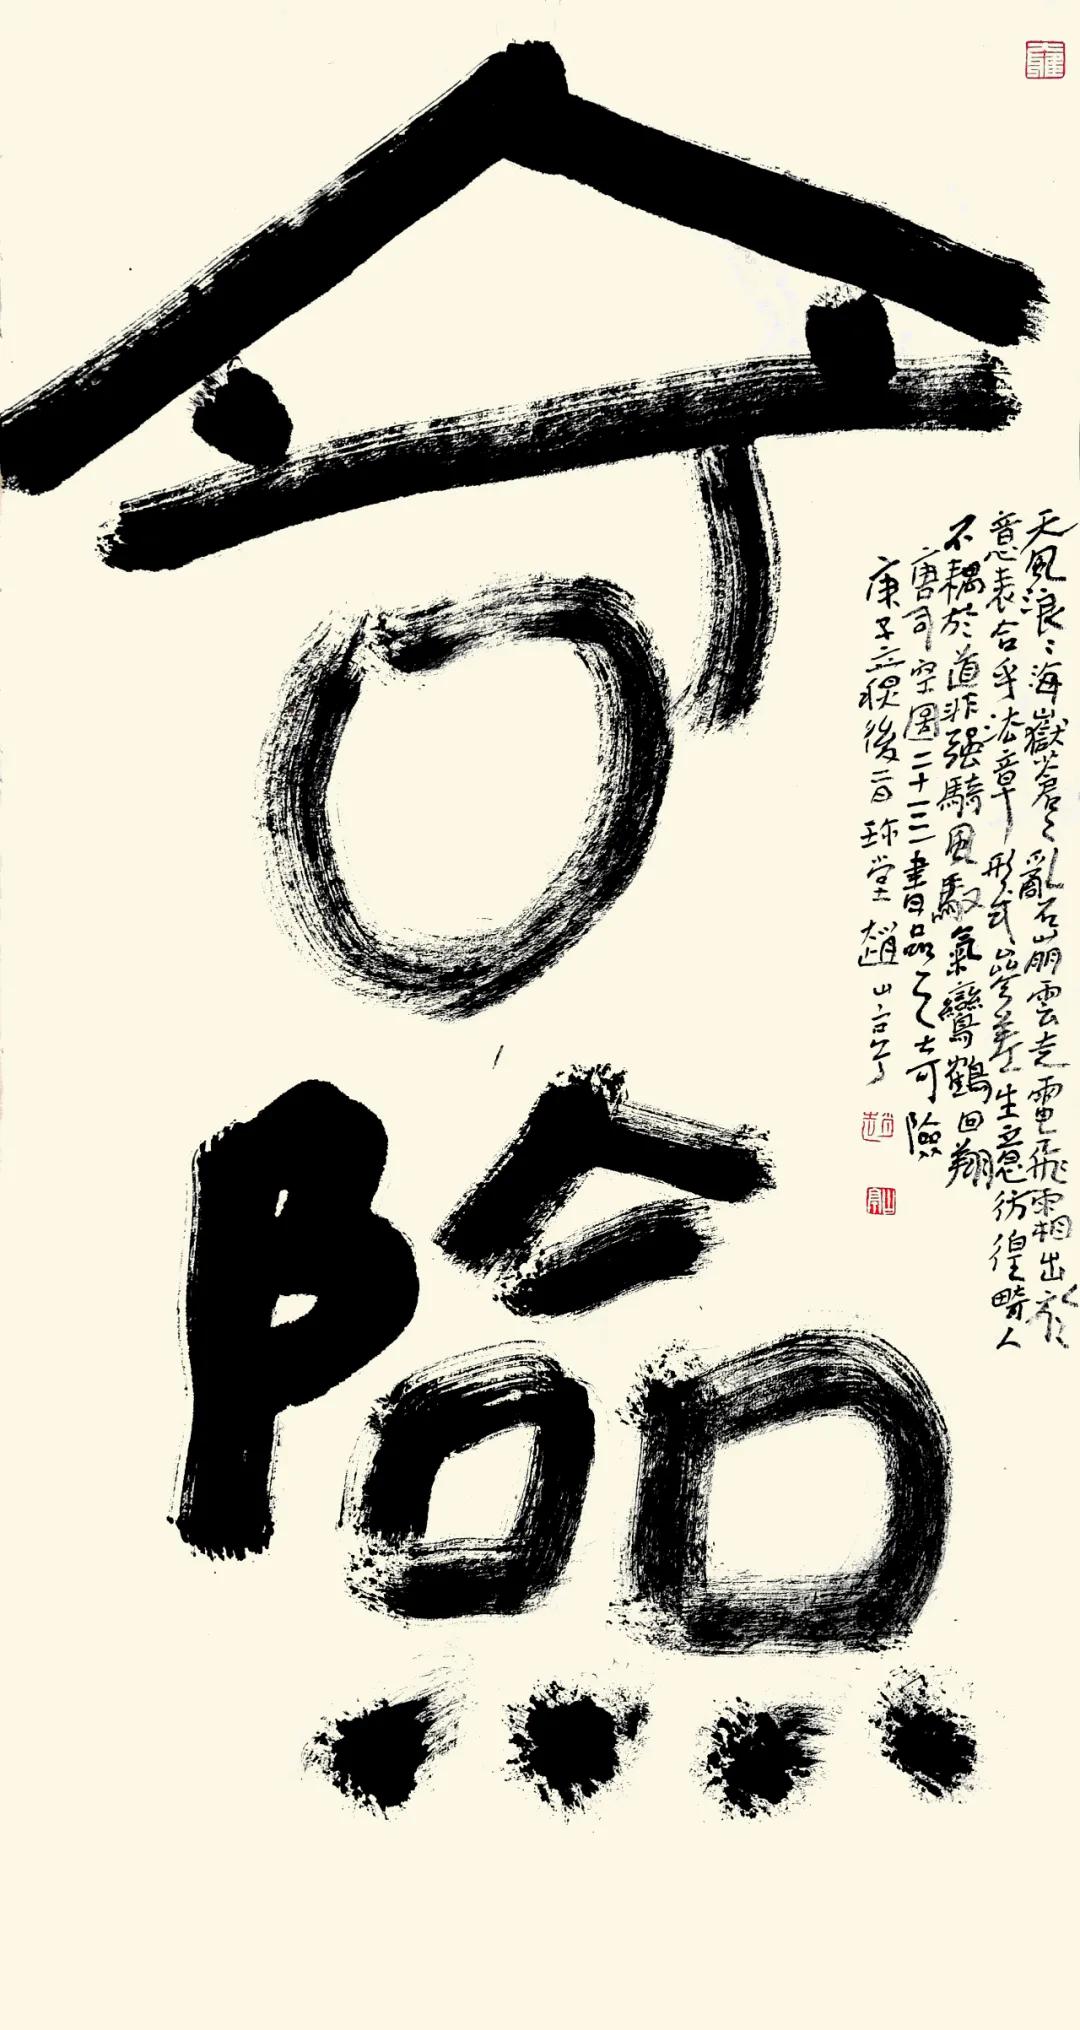 奇險
天風浪〻海嶽蒼〻亂石崩雲走電飛霜出於
意表合乎法章形式參差生意彷徨畸人
不耦於道非強騎風馭氣鸞鶴回翔
唐司空圖二十三書品之奇險
庚子立秋後二日珎堂趙山亭
趙